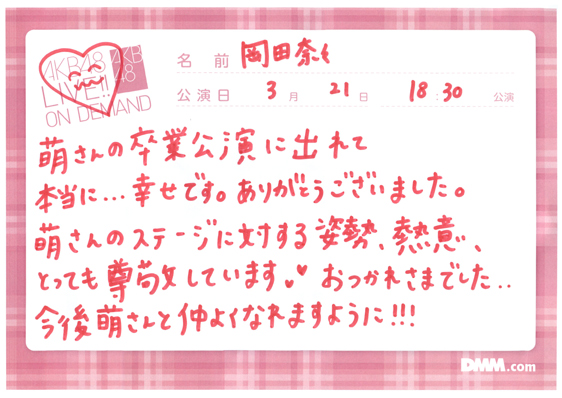 AKB48
LIVE!!
ON DEMAND
AKB
48
名 前 岡田奈々
公演日 3 月 21 日 18:30 公演
萌さんの卒業公演に出れて
本当に…幸せです。ありがとうございました。
萌さんのステージに対する姿勢、熱意、
とっても尊敬しています。♥ おつかれさまでした..
今後萌さんと仲よくなれますように!!!
DMM.com